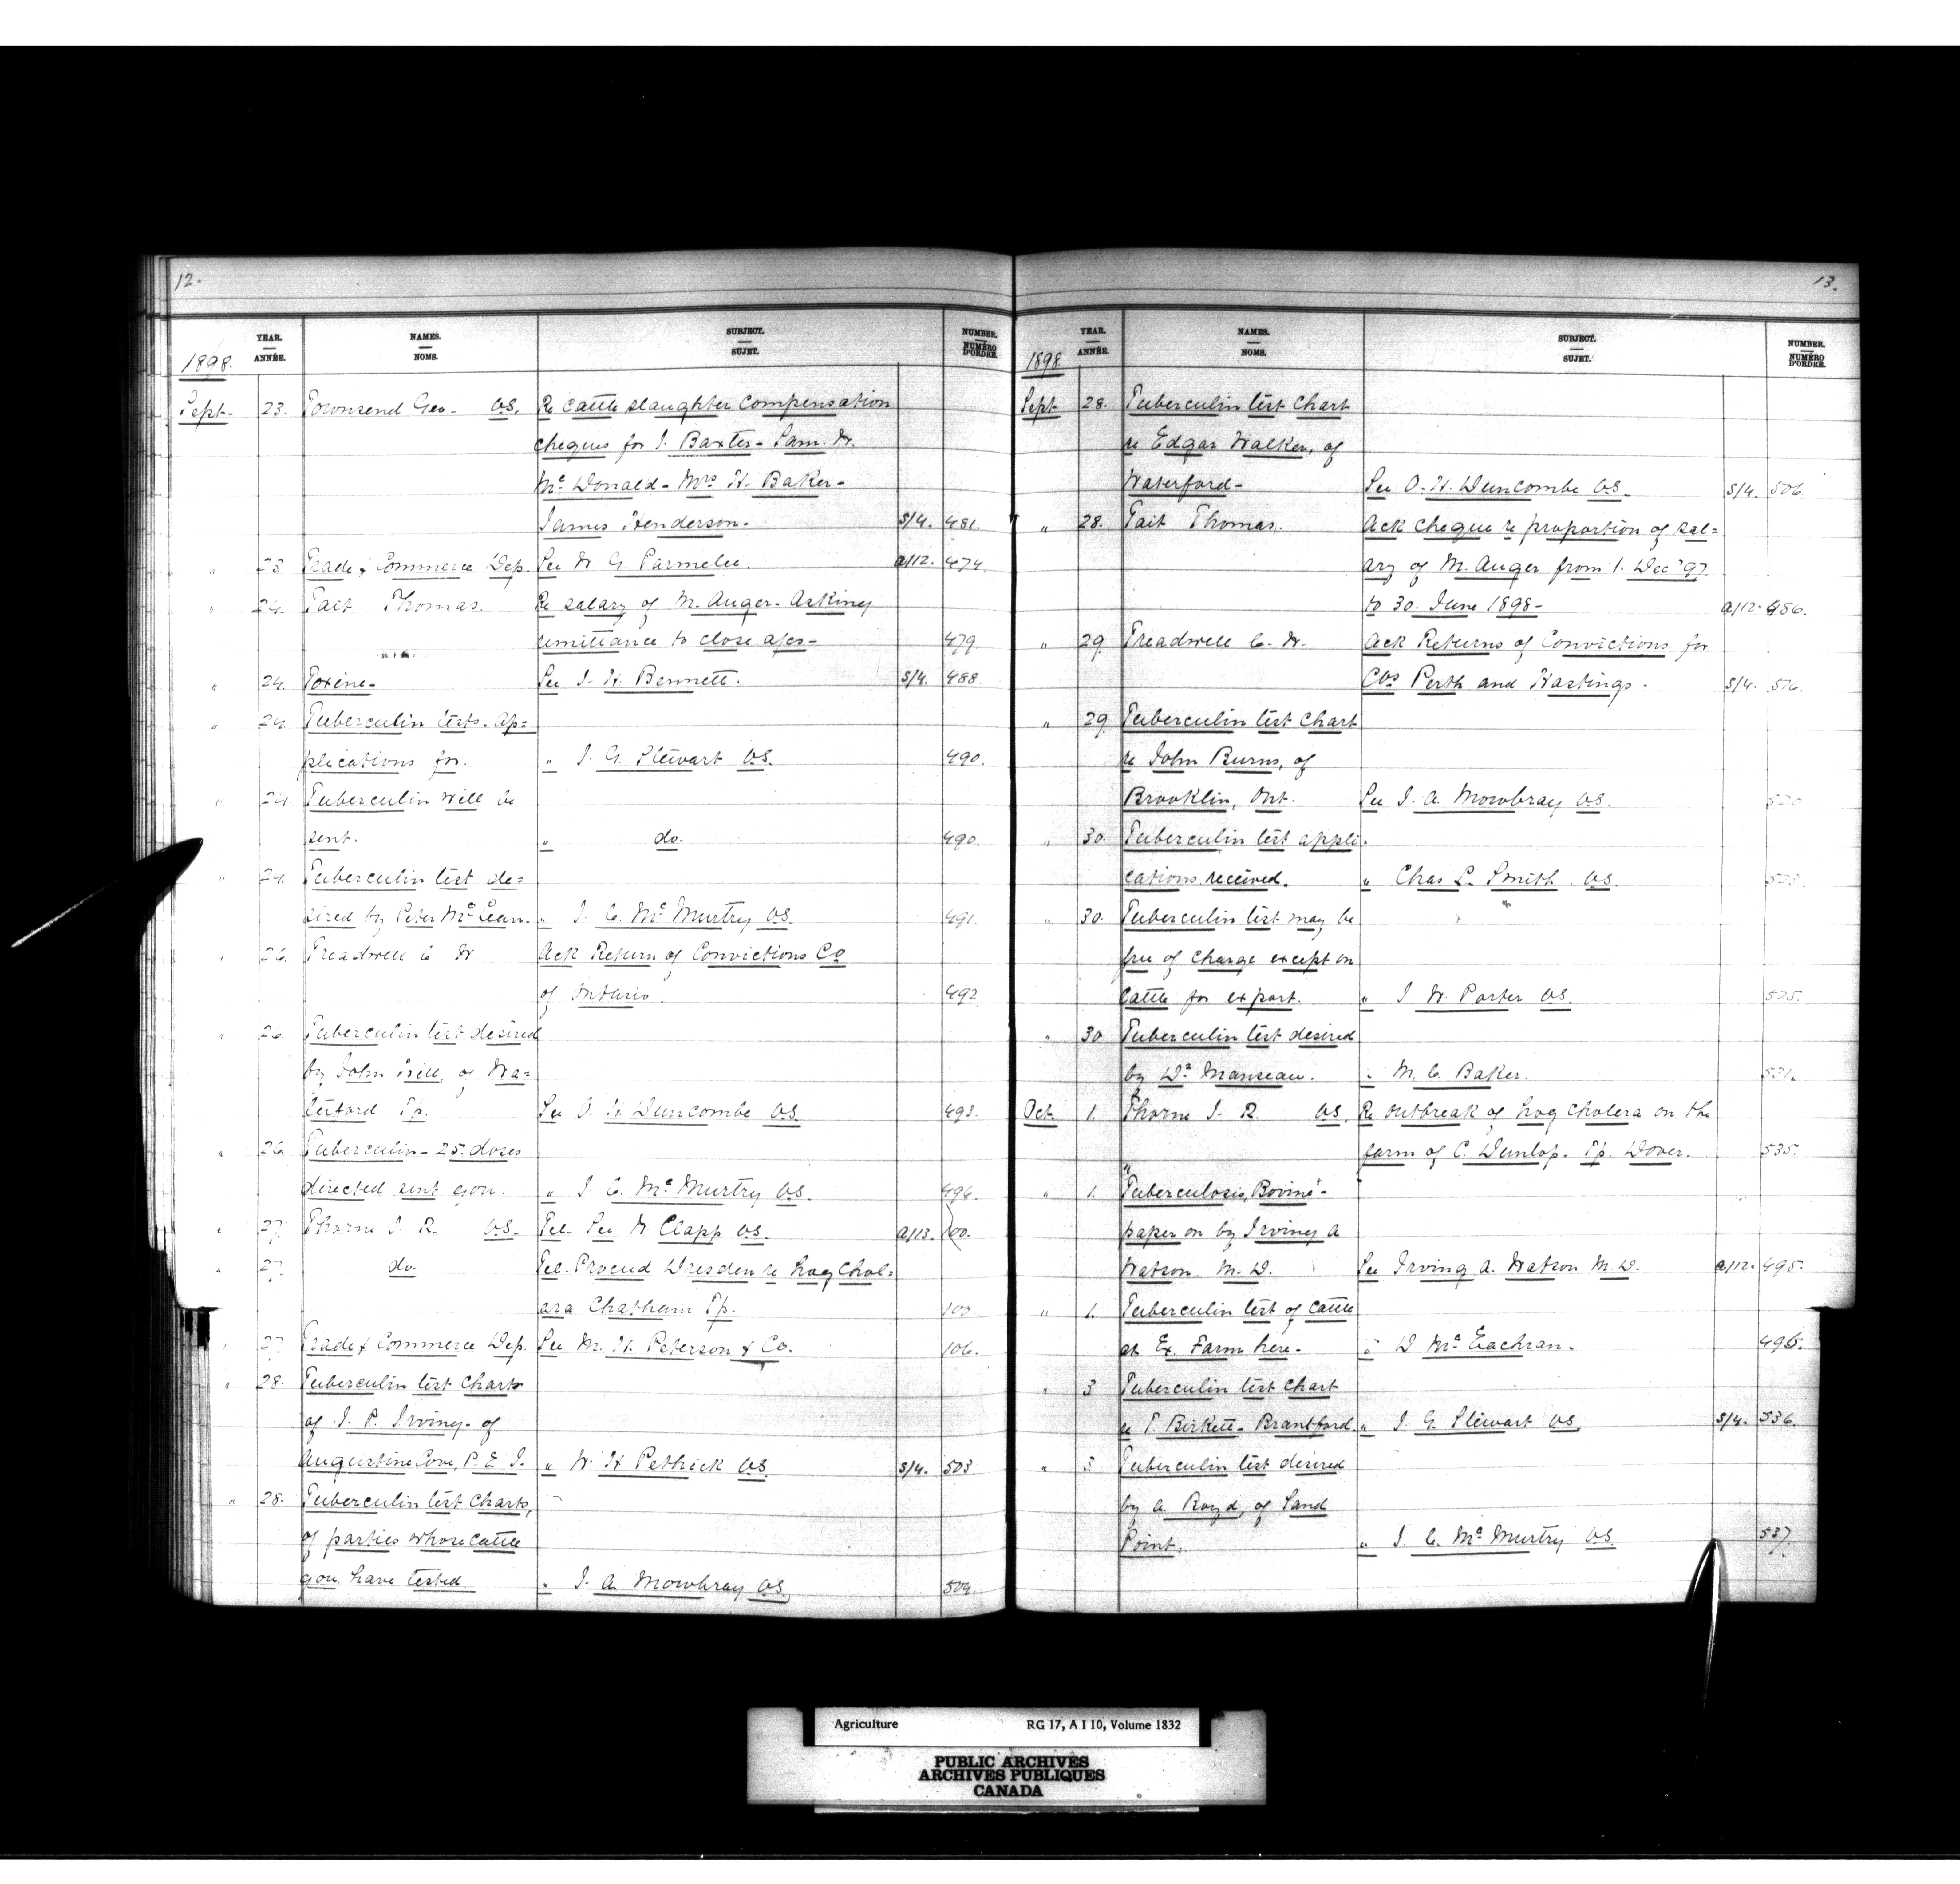 12.
YEAR. NAMES. SUBJECT. NUMBER.
1898. ANNÉE. NOMS. SUJET. NUMÉRO D'ORDRE.
Sept- 23. Townsend Geo- V.S. Re cattle slaughter compensation
cheques for J. Baxter- Sam. W.
McDonald- Mrs H. Baker-
James Henderson. S/4. 481.
" 23 Trade & Commerce Dep. See W G Parmelee. a/12. 474.
" 24. Tait Thomas. Re salary of M. Auger- Asking
remittance to close a/cs- 479
" 24. Toxine- See J. H. Bennett. S/4. 488
" 24 Tuberculin tests. Ap=
plications for. " J. G. Stewart V.S. 490.
" 24. Tuberculin will be
sent. " do. 490.
" 24. Tuberculin test de=
sired by Peter McLean. " J. C. McMurtry V.S. 491.
" 26. Treadwell C W Ack Return of Convictions Co
of Ontario. 492
" 26. Tuberculin test desired
by John Hill, of Wa=
terford Tp. See O. H. Duncombe V.S. 493.
" 26 Tuberculin- 25 doses
directed sent you. " J. C. McMurtry V.S. 496.
" 27. Thorne J. R. V.S. Tel. See W. Clapp V.S. a/13. 100.
" 27. do. Tel. Proceed Dresden re hog chol=
ara Chatham Tp. 100
" 27 Trade & Commerce Dep. See M. H. Peterson & Co. 106.
" 28. Tuberculin test charts
of J. P. Irving- of
Augustine Cove, P. E. I. " W. H. Pethick V.S. S/4. 503
" 28. Tuberculin test charts,
of parties whose cattle
you have tested. " J. A. Mowbray V.S. 504
13.
YEAR. NAMES. SUBJECT. NUMBER.
1898. ANNÉE. NOMS. SUJET. NUMÉRO D'ORDRE.
Sept 28. Tuberculin test chart
re Edgar Walker, of
Waterford- See O. H. Duncombe V.S. S/4. 506
" 28. Tait Thomas. Ack cheque re proportion of sal=
ary of M. Auger from 1. Dec '97.
to 30. June 1898- a/12. 486.
" 29 Treadwell C. W. Ack Returns of Convictions for
Cos Perth and Hastings. S/4. 516.
" 29 Tuberculin test chart
re John Burns, of
Brooklin, Ont. See J. A. Mowbray V.S. 520.
" 30. Tuberculin test appli=
cations received. " Chas L. Smith V.S. 523.
" 30. Tuberculin test may be
free of charge except on
cattle for export. " J. W. Porter V.S. 525.
" 30 Tuberculin test desired
by Dr Manseau. " M. C. Baker. 531.
Oct. 1. Thorne J. R. V.S. Re outbreak of hog cholera on the
farm of C. Dunlop. Tp. Dover. 535.
" 1. "Tuberculosis, Bovine"-
paper on by Irving A
Watson. M. D. See Irving A. Watson M. D. a/12. 495.
" 1. Tuberculin test of cattle
at Ex. Farm here- " D McEachran. 496.
" 3 Tuberculin test chart
re T. Birkett- Brantford. " J. G. Stewart V.S. S/4. 536.
" 3. Tuberculin test desired
by A. Boyd, of Sand
Point. " J. C. McMurtry V.S. 537.
Agriculture RG 17, A I 10, Volume 1832
PUBLIC ARCHIVES
ARCHIVES PUBLIQUES
CANADA